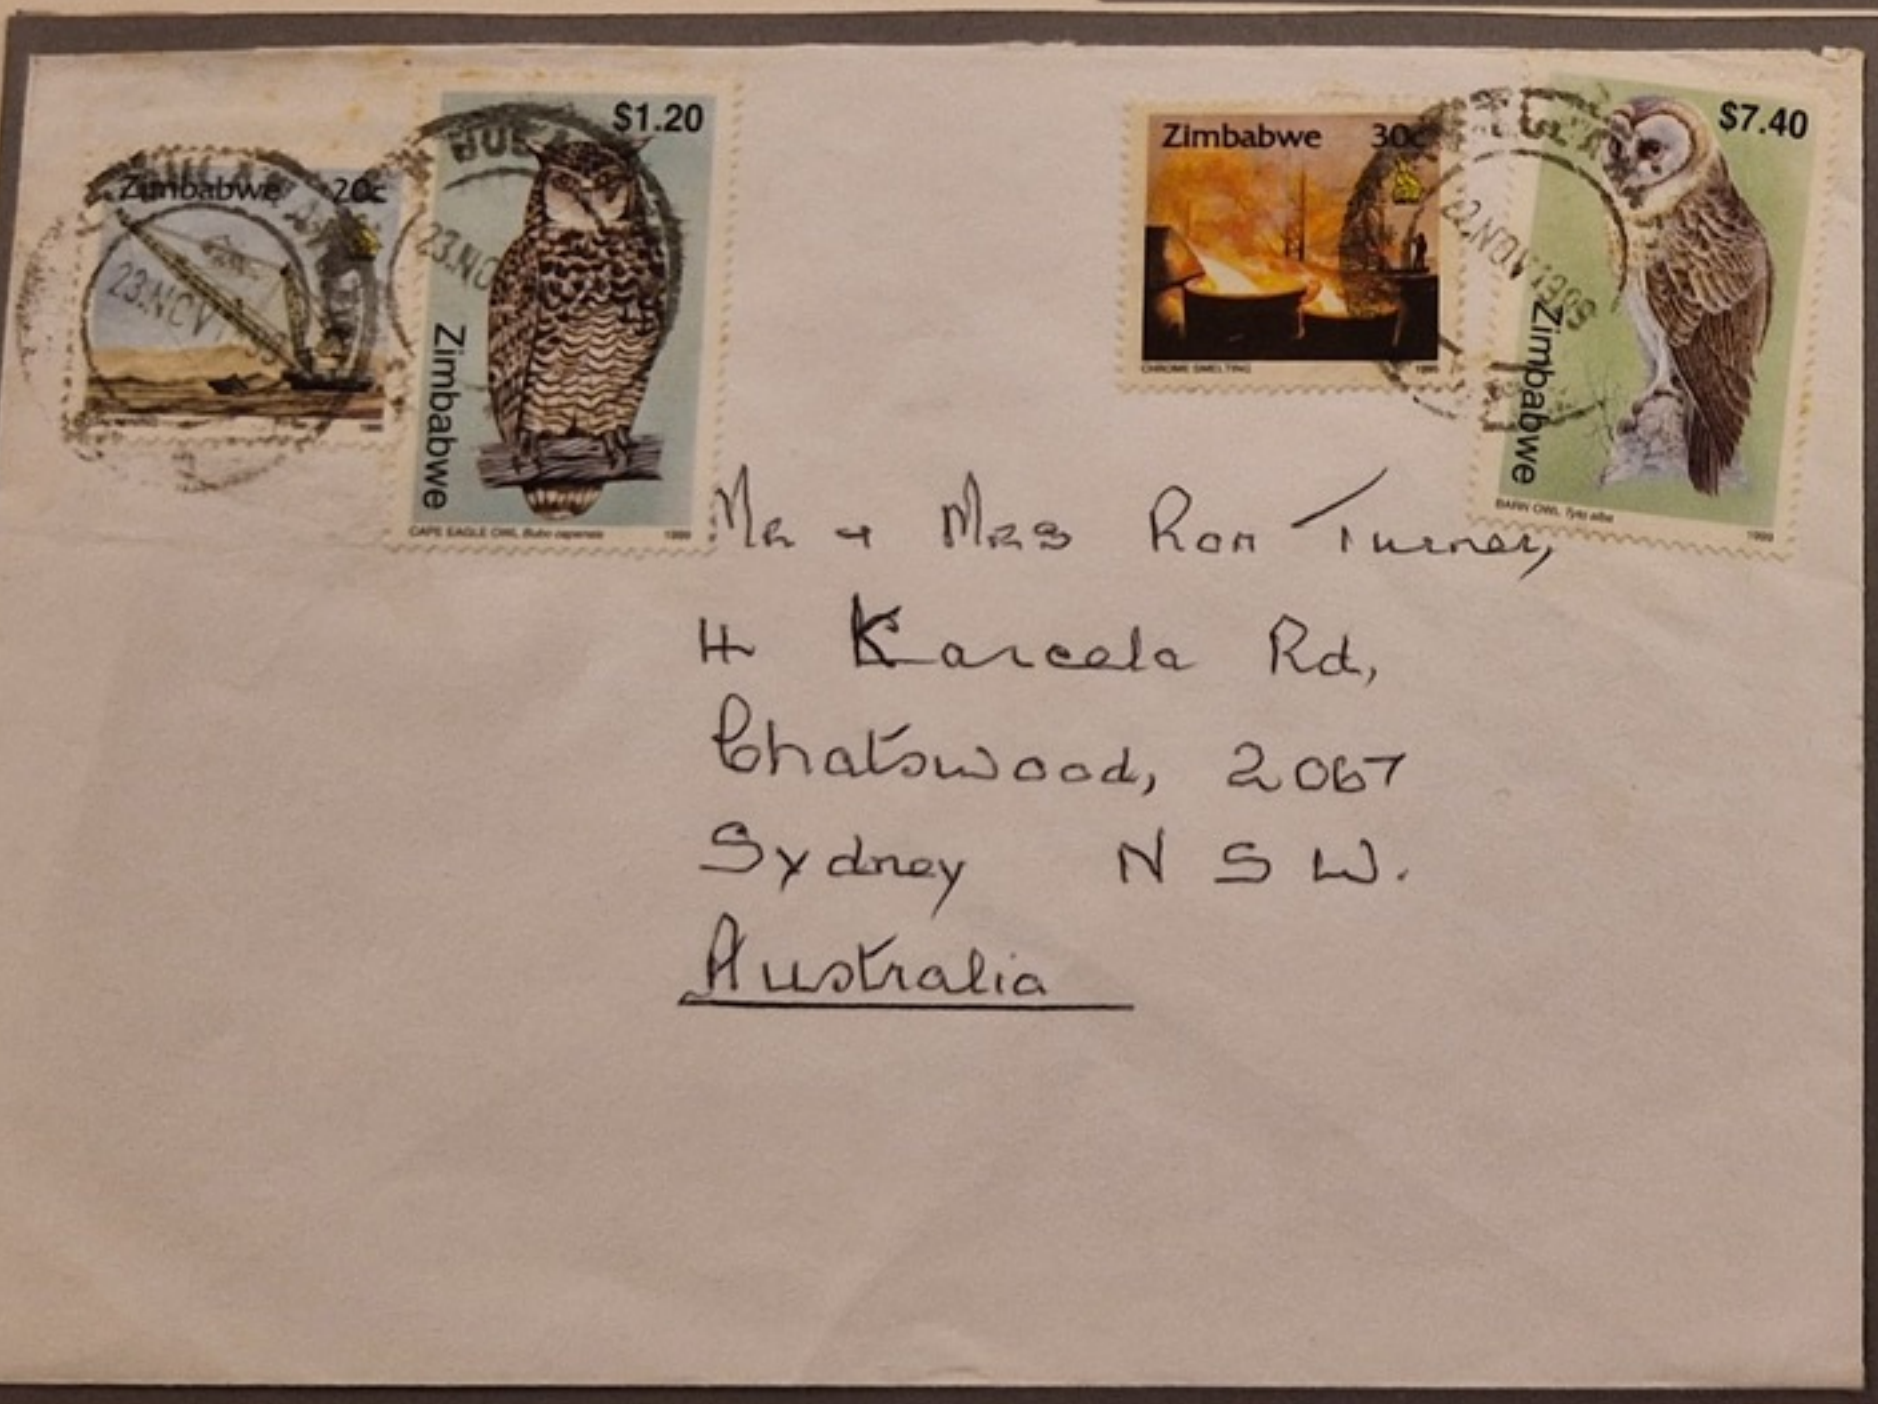 Zimbabwe 20c
23.NOV
$1.20
23.NO
Zimbabwe
CAPE EAGLE OWL Bubo capensis 1999
Zimbabwe 30c
CHROME SMELTING 1995
22.NOV 1999
$7.40
Zimbabwe
BARN OWL Tyto alba 1999
Mr + Mrs Ron Turner,
4 Kareela Rd,
Chatswood, 2067
Sydney N S W.
Australia